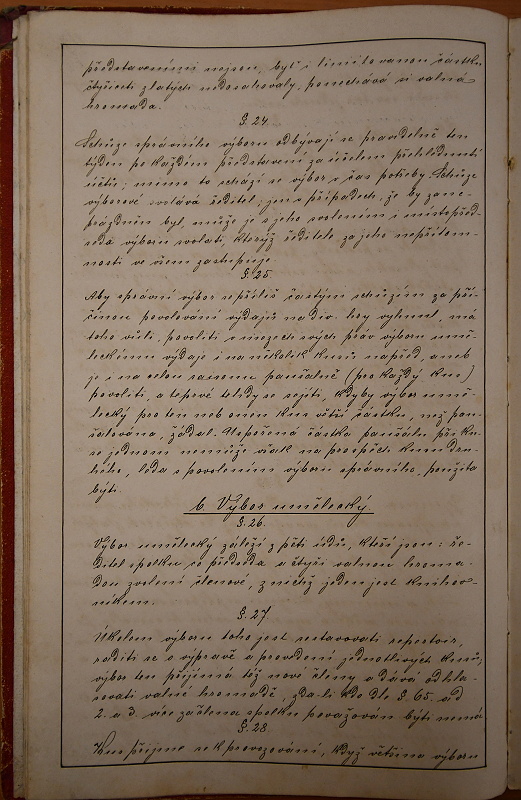 představeními nejsou, byť i limitovanou částku
čtyřiceti zlatých nedosahovaly, ponechává si valná
hromada.
§. 24.
Schůze správního výboru odbývají se pravidelně ten
týden po každém představení za účelem přehlédnutí
účtů; mimo to schází se výbor v čas potřeby. Schůze
výborové svolává ředitel; jen v případech, že by zane-
prázdněn byl, může je s jeho svolením i místopřed-
seda výboru svolati, kterýž ředitele za jeho nepřítom-
nosti ve všem zastupuje.
§. 25.
Aby správní výbor se příliš častým schůzím za pří-
činou povolování výdajů na div. hry vyhnul, má
toho vůli, povoliti v mezech svých práv výboru umě-
leckému výdaje i na několik kusů napřed, aneb
je i na celou saisonu paušálně (pro každý kus)
povoliti, a teprvé tehdy se sejíti, kdyby výbor umě-
lecký pro ten neb onen kus větší částku, než pau-
šalována, žádal. Uspořená částka paušálu při ku-
se jednom nemůže však na prospěch kusu dru-
hého, leda s povolením výboru správního, použita
býti.
b. Výbor umělecký
§. 26.
Výbor umělecký záleží z pěti údů, kteří jsou: ře-
ditel spolku co předseda a čtyři valnou hroma-
dou zvolení členové, z nichž jeden jest knihov-
níkem.
§. 27.
Úkolem výboru toho jest sestavovati repertoir,
raditi se o výpravě a provedení jednotlivých kusů;
výbor ten přijímá též nové členy a dává odhla-
sovati valné hromadě, zda-li kdo dle §. 65. ad
2. a 3. více za člena spolku považován býti nemá
§. 28
Kus přijme se k provozování, když většina výboru